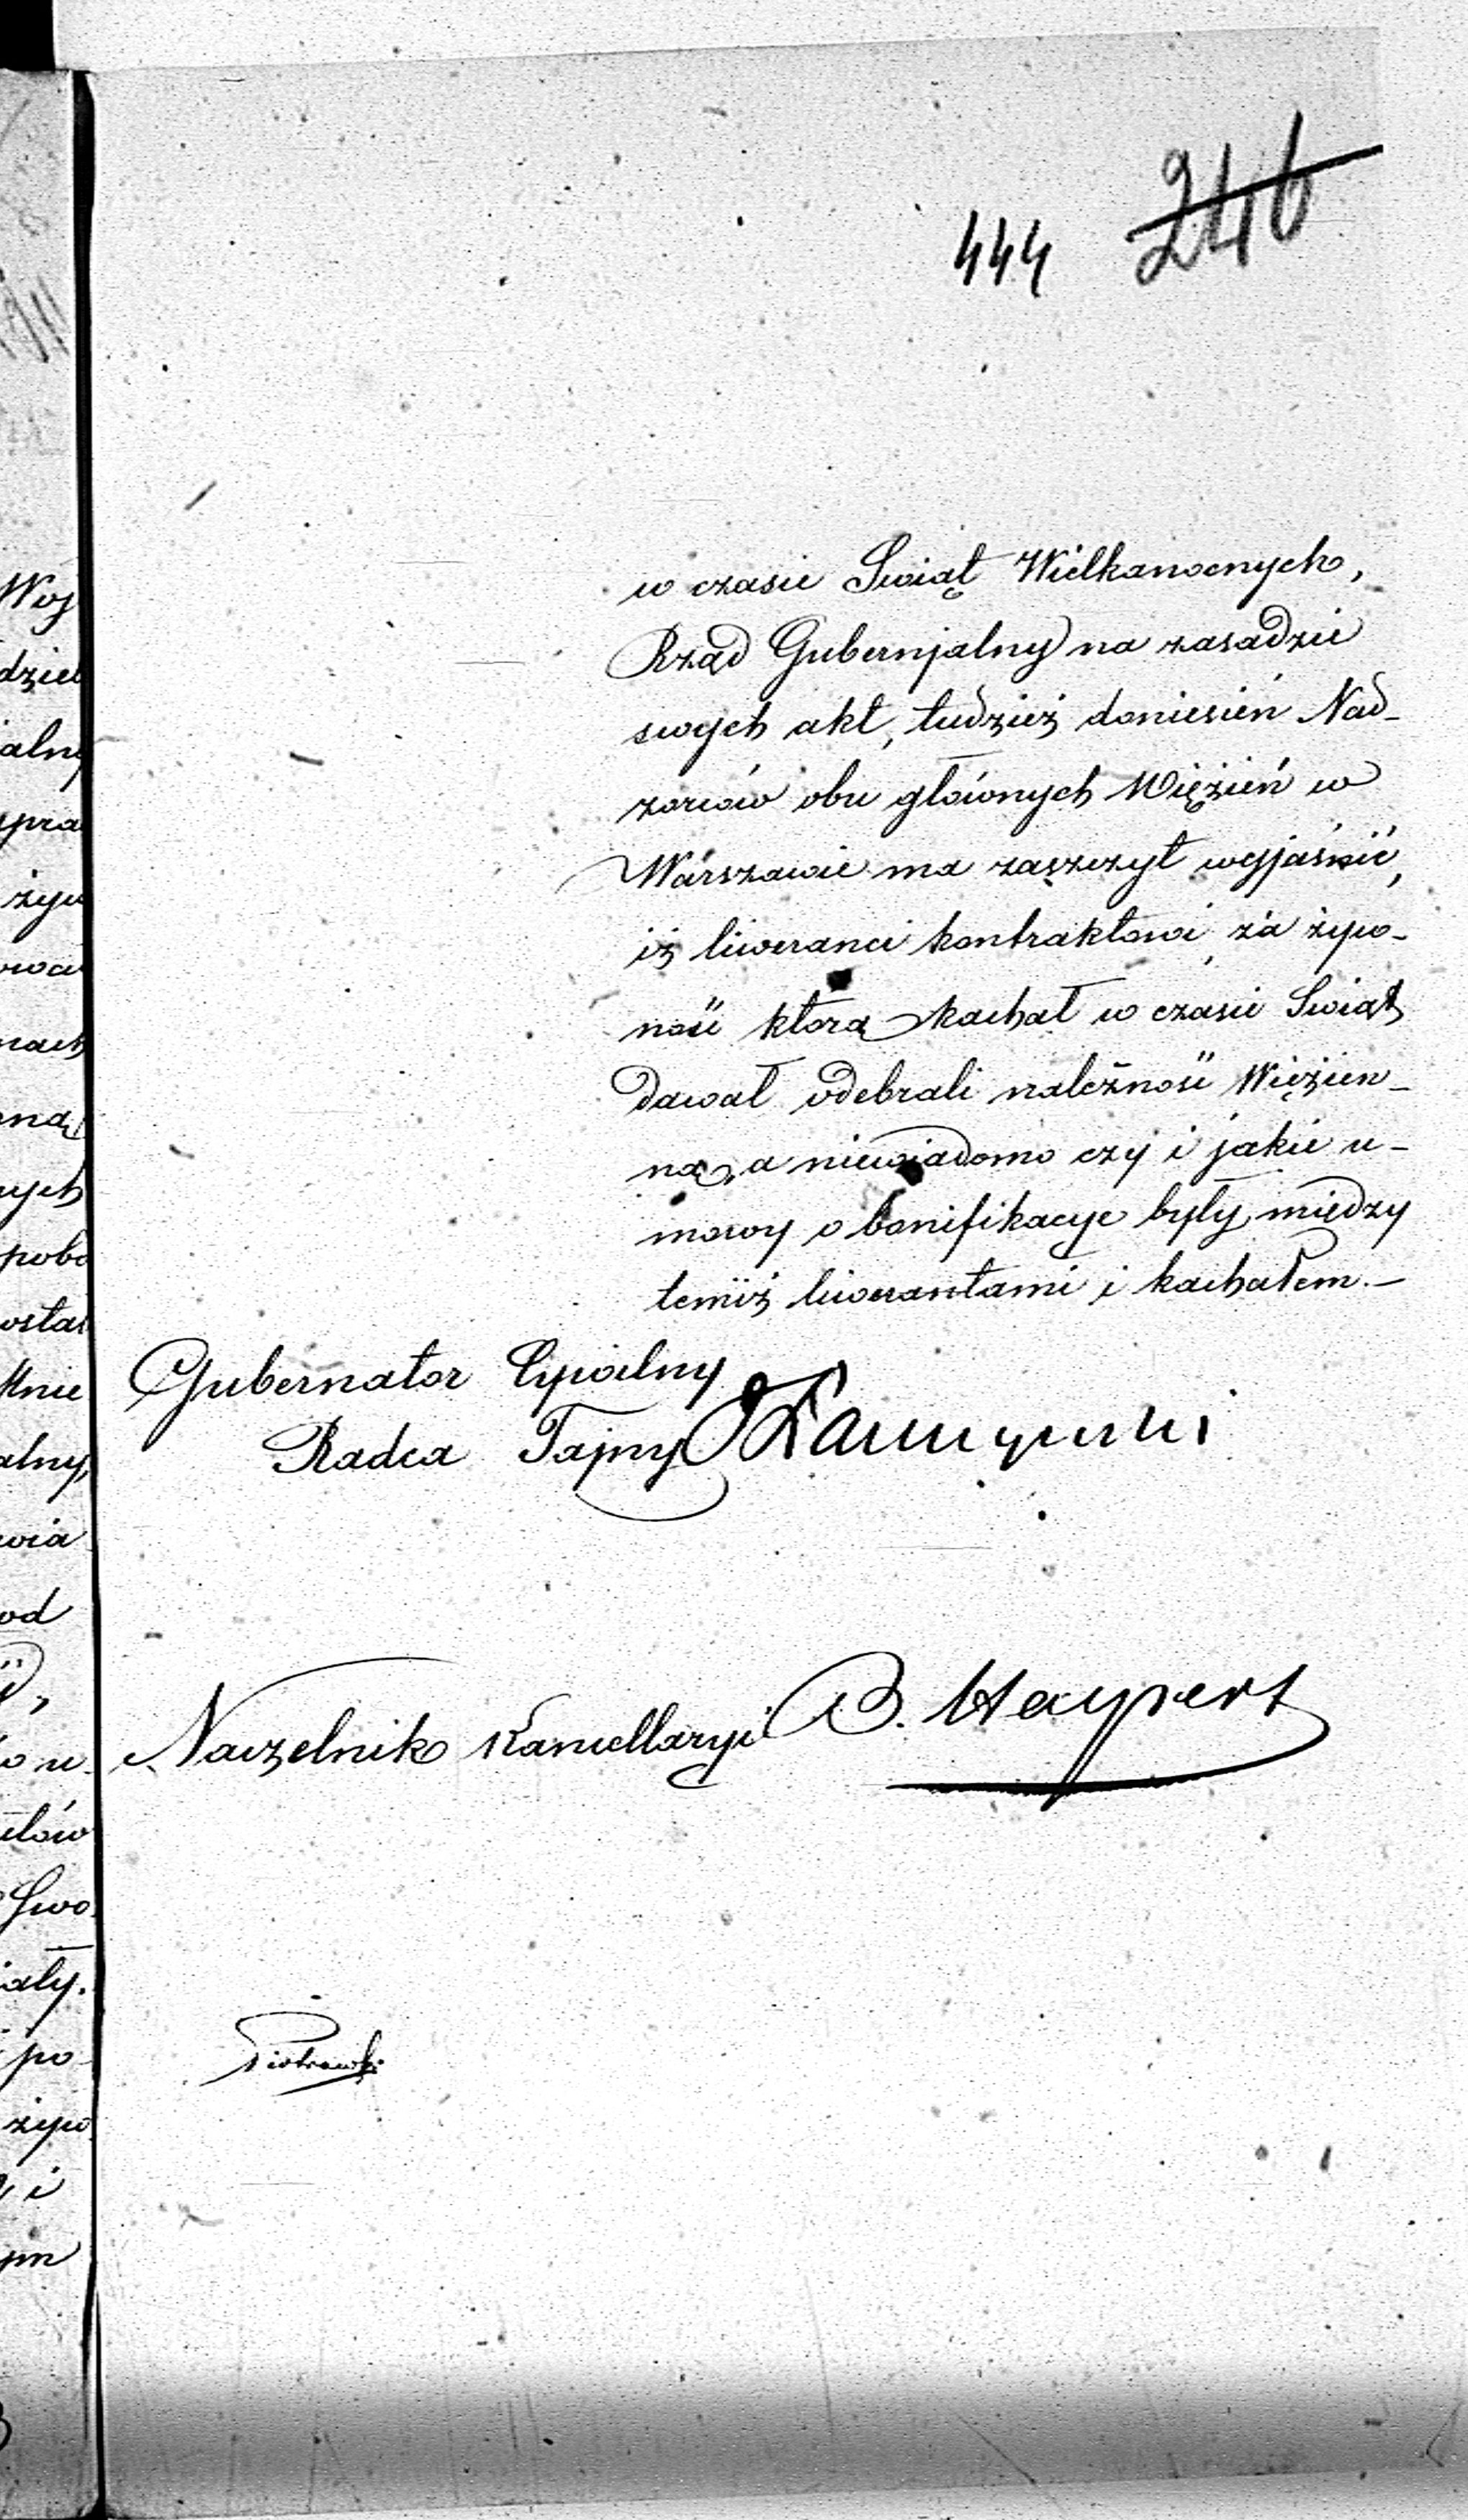 444 246
w czasie Swiąt Wielkanocnych,
Rząd Gubernjalny na zasadzie
swych akt, tudzież doniesień Nad-
zorców obu głównych Więzień w
Warszawie ma zaszczyt wyjaśnić,
iż liweranci kontraktowi za żyw-
ność którą Kachał w czasie Swiąt
dawał odebrali należność Więzien-
ną, a niewiadomo czy i jakie u-
mowy o bonifikacye były między
temiż liwerantami i Kachałem.—
Gubernator Cywilny
Radca Tajny
Naczelnik Kancellaryi B.
Piotrowski